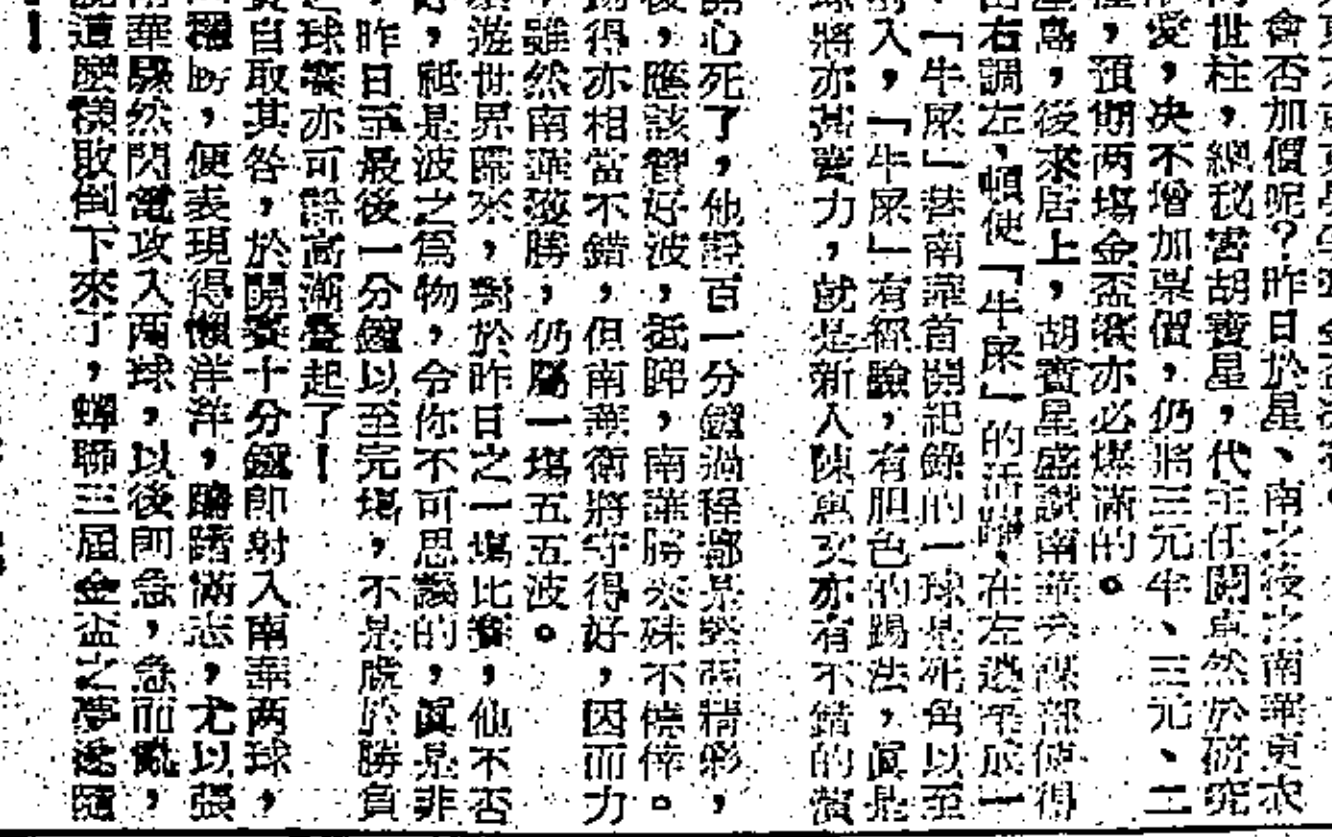 會否加價呢？昨日於星、南之後之南華東衣
世柱，總秘書胡寶星，代主任關卓然於研究
愛，決不增加票價，仍將三元半、三元、二
，預期両場金盃賽亦必爆滿的。
島，後來居上，胡寶星盛讚南華 部使得
右調左、頓使「牛屎」的活躍、在左邊 一
「牛屎」替南華首開紀錄的一球是死角以至
入，「牛屎」有經驗，有胆色的踢法，眞是
將亦甚賣力，就是新人陳興文亦有不錯的演
心死了，他謂百一分鐘過程都是緊張精彩，
，應該替好波，抵睇，南華勝來殊不僥倖。
得亦相當不錯，但南華衛將守得好，因而力
雖然南華獲勝，仍屬一場五五波。
遊世界歸來，對於昨日之一場比賽，他不否
，縱是波之爲物，令你不可思議的，眞是非
昨日至最後一分鐘以至完場，不是處於勝負
球賽亦可說高潮疊起了！
自取其咎，於開賽十分鐘即射入南華両球，
，便表現得懶洋洋，躊躇滿志，尤以張
華驟然閃電攻入両球，以後即急，急而亂，
這麽樣敗倒下來了，蟬聯三屆金盃之夢後隨
！